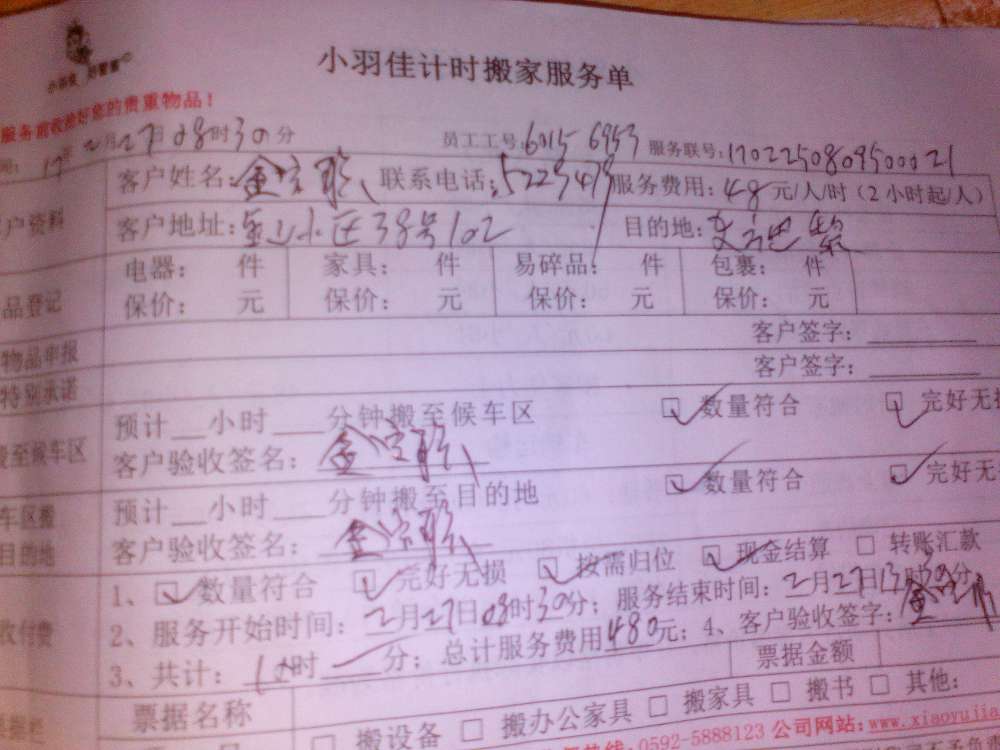 小羽佳计时搬家服务单
服务前收拾好您的贵重物品！
17年2月27日08时30分 员工工号:6015 6953 服务联号:17022508095000021
客户资料 客户姓名:金 联系电话:5223 服务费用:48元/人/时（2小时起/人）
客户地址:金山小区38号102 目的地:
品登记 电器: 件 家具: 件 易碎品: 件 包裹: 件
保价: 元 保价: 元 保价: 元 保价: 元
物品申报 客户签字:
特别承诺 客户签字:
预计 小时 分钟搬至候车区 ☑数量符合 ☑完好无损
搬至候车区 客户验收签名:金
预计 小时 分钟搬至目的地 ☑数量符合 ☑完好无
车区搬
目的地 客户验收签名:金
1、☑数量符合 ☑完好无损 ☑按需归位 ☑现金结算 □转账汇款
收付费 2、服务开始时间:2月27日08时30分；服务结束时间:2月27日13时30分
3、共计:10时 分；总计服务费用480元；4、客户验收签字:金
票据名称 票据金额
□搬设备 □搬办公家具 □搬家具 □搬书 □其他:
热线:0592-5888123 公司网站:www.xiaoyujia